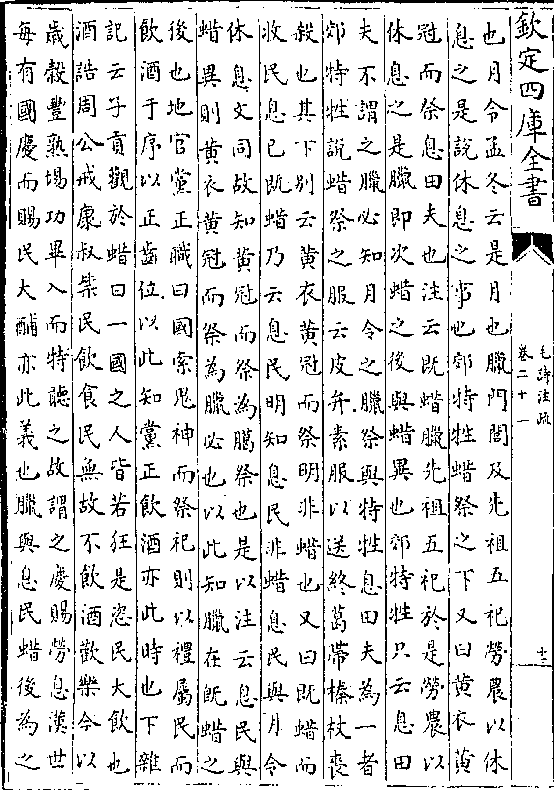 欽定四庫全書
毛詩注疏
卷二十一
十二
也月令孟冬云是月也臘門閭及先祖五祀勞農以休
息之是說休息之事也郊特牲蜡祭之下又曰黃衣黃
冠而祭息田夫也注云既蜡臘先祖五祀於是勞農以
休息之是臘即次蜡之後與蜡異也郊特牲只云息田
夫不謂之臘必知月令之臘祭與特牲息田夫為一者
郊特牲說蜡祭之服云皮弁素服以送終葛帶榛杖喪
殺也其下別云黃衣黃冠而祭明非蜡也又曰既蜡而
收民息已既蜡乃云息民明知息民非蜡息民與月令
休息文同故知黃冠而祭為臈祭也是以注云息民與
蜡異則黃衣黃冠而祭為臘必也以此知臘在既蜡之
後也地官黨正職曰國索鬼神而祭祀則以禮屬民而
飲酒于序以正齒位以此知黨正飲酒亦此時也下雜
記云子貢觀於蜡曰一國之人皆若狂是恣民大飲也
酒誥周公戒康叔禁民飲食民無故不飲酒歡樂今以
歲榖豐熟場功畢入而特聽之故謂之慶賜勞息漢世
每有國慶而賜民大酺亦此義也臘與息民蜡後為之